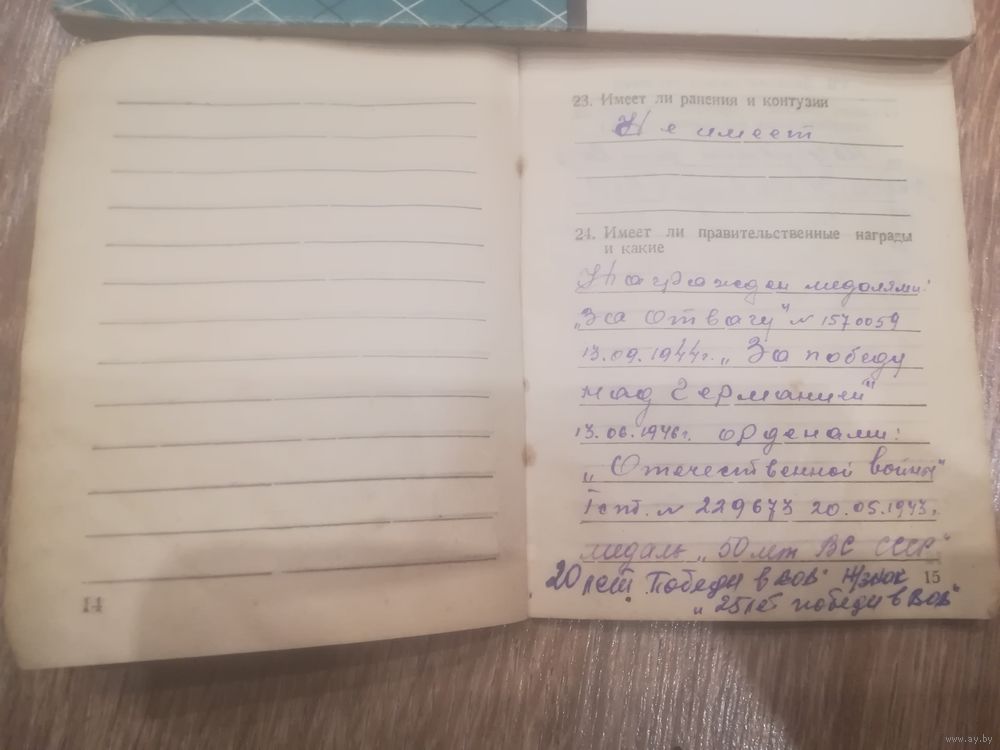 23. Имеет ли ранения и контузии
Не имеет
24. Имеет ли правительственные награды
и какие
Награжден медалями:
„За отвагу" № 1570059
13.09.1944г. „За победу
над Германией"
13.06.1946г. орденами:
„Отечественной войны"
I ст. № 229673 20.05.1943г.
медаль „50 лет ВС СССР"
20 лет Победы в ВОВ" Н/знак 15
„25 лет победы в ВОВ"
14
www.ay.by